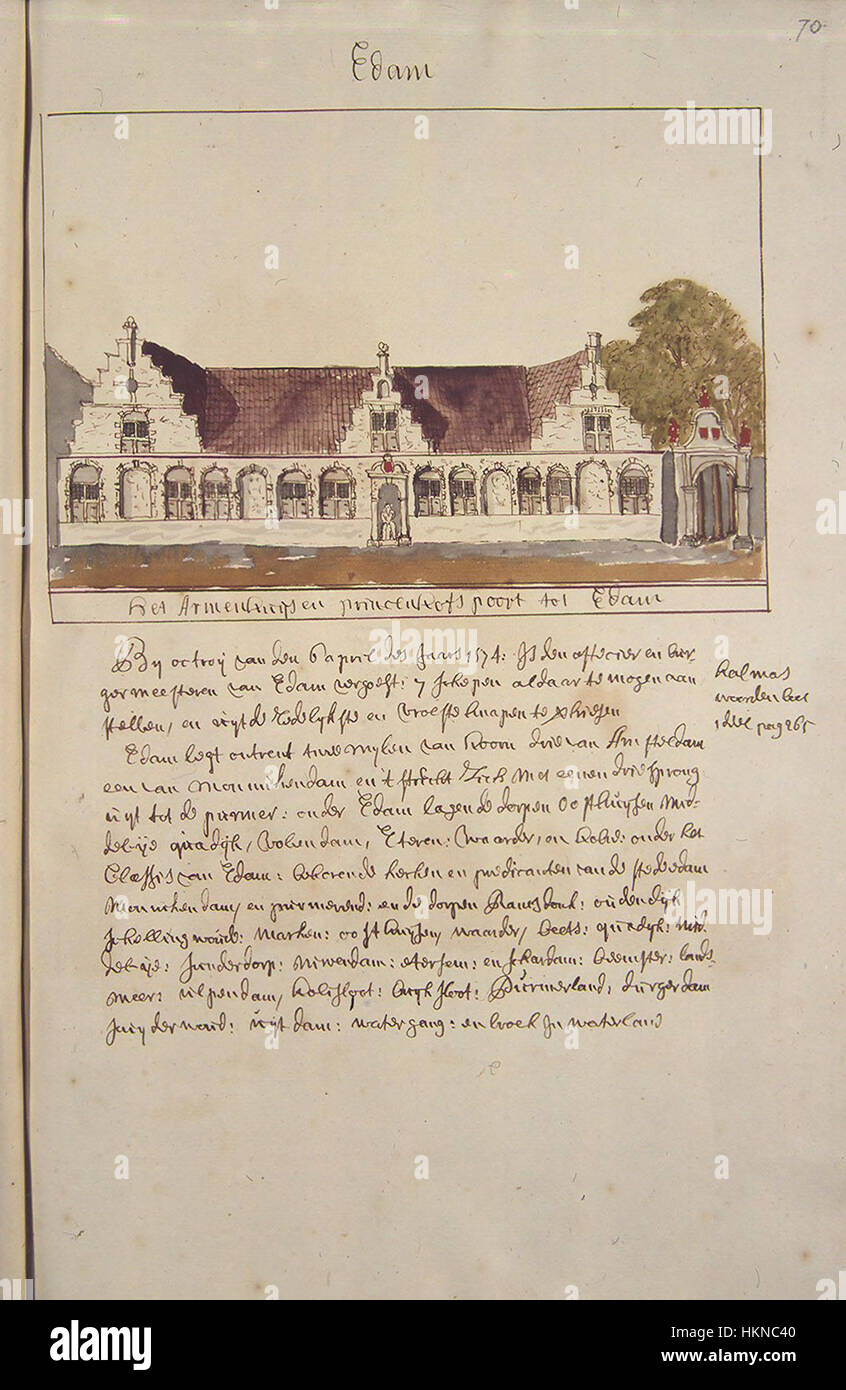 70
Edam
Het Armenhuijs en princenhofs poort tot Edam
By octroij van den 6 april des Jaars 1574: Is den officier en bur-
germeesteren van Edam vergost: 7 schepen aldaar te mogen aan
stellen, en uijt de Redelijkste en vroetste knapen te kiesen
Halmas
woorden boek
1 deel pag 265
Edam legt ontrent twe mylen van Hoorn drie van Amsteldam
een van monnikendam en 't strekt zich met eenen driesprong
uijt tot de purmer: onder Edam leggen de dorpen Oosthuijsen Mid-
delije quadijk, Volendam, Eteren: Waarder, en Hobre: onder het
Classis van Edam: behorende kerken en predicanten van de stede edam
Monnikendam, en purmerend: en de dorpen Ransdonk: oudendijk
schellingwoude: Marken: oosthuijsen, waarder, beets: quadijk: mid
delije: sunderdorp: Niwendam: etersem: en schardam: beemster: lands-
meer: ilpendam, holisloot: buyksloot: Purmerland: durgerdam
suyderwoud: uijtdam: watergang: en broek In waterland
a
alamy
Image ID: HKNC40
www.alamy.com